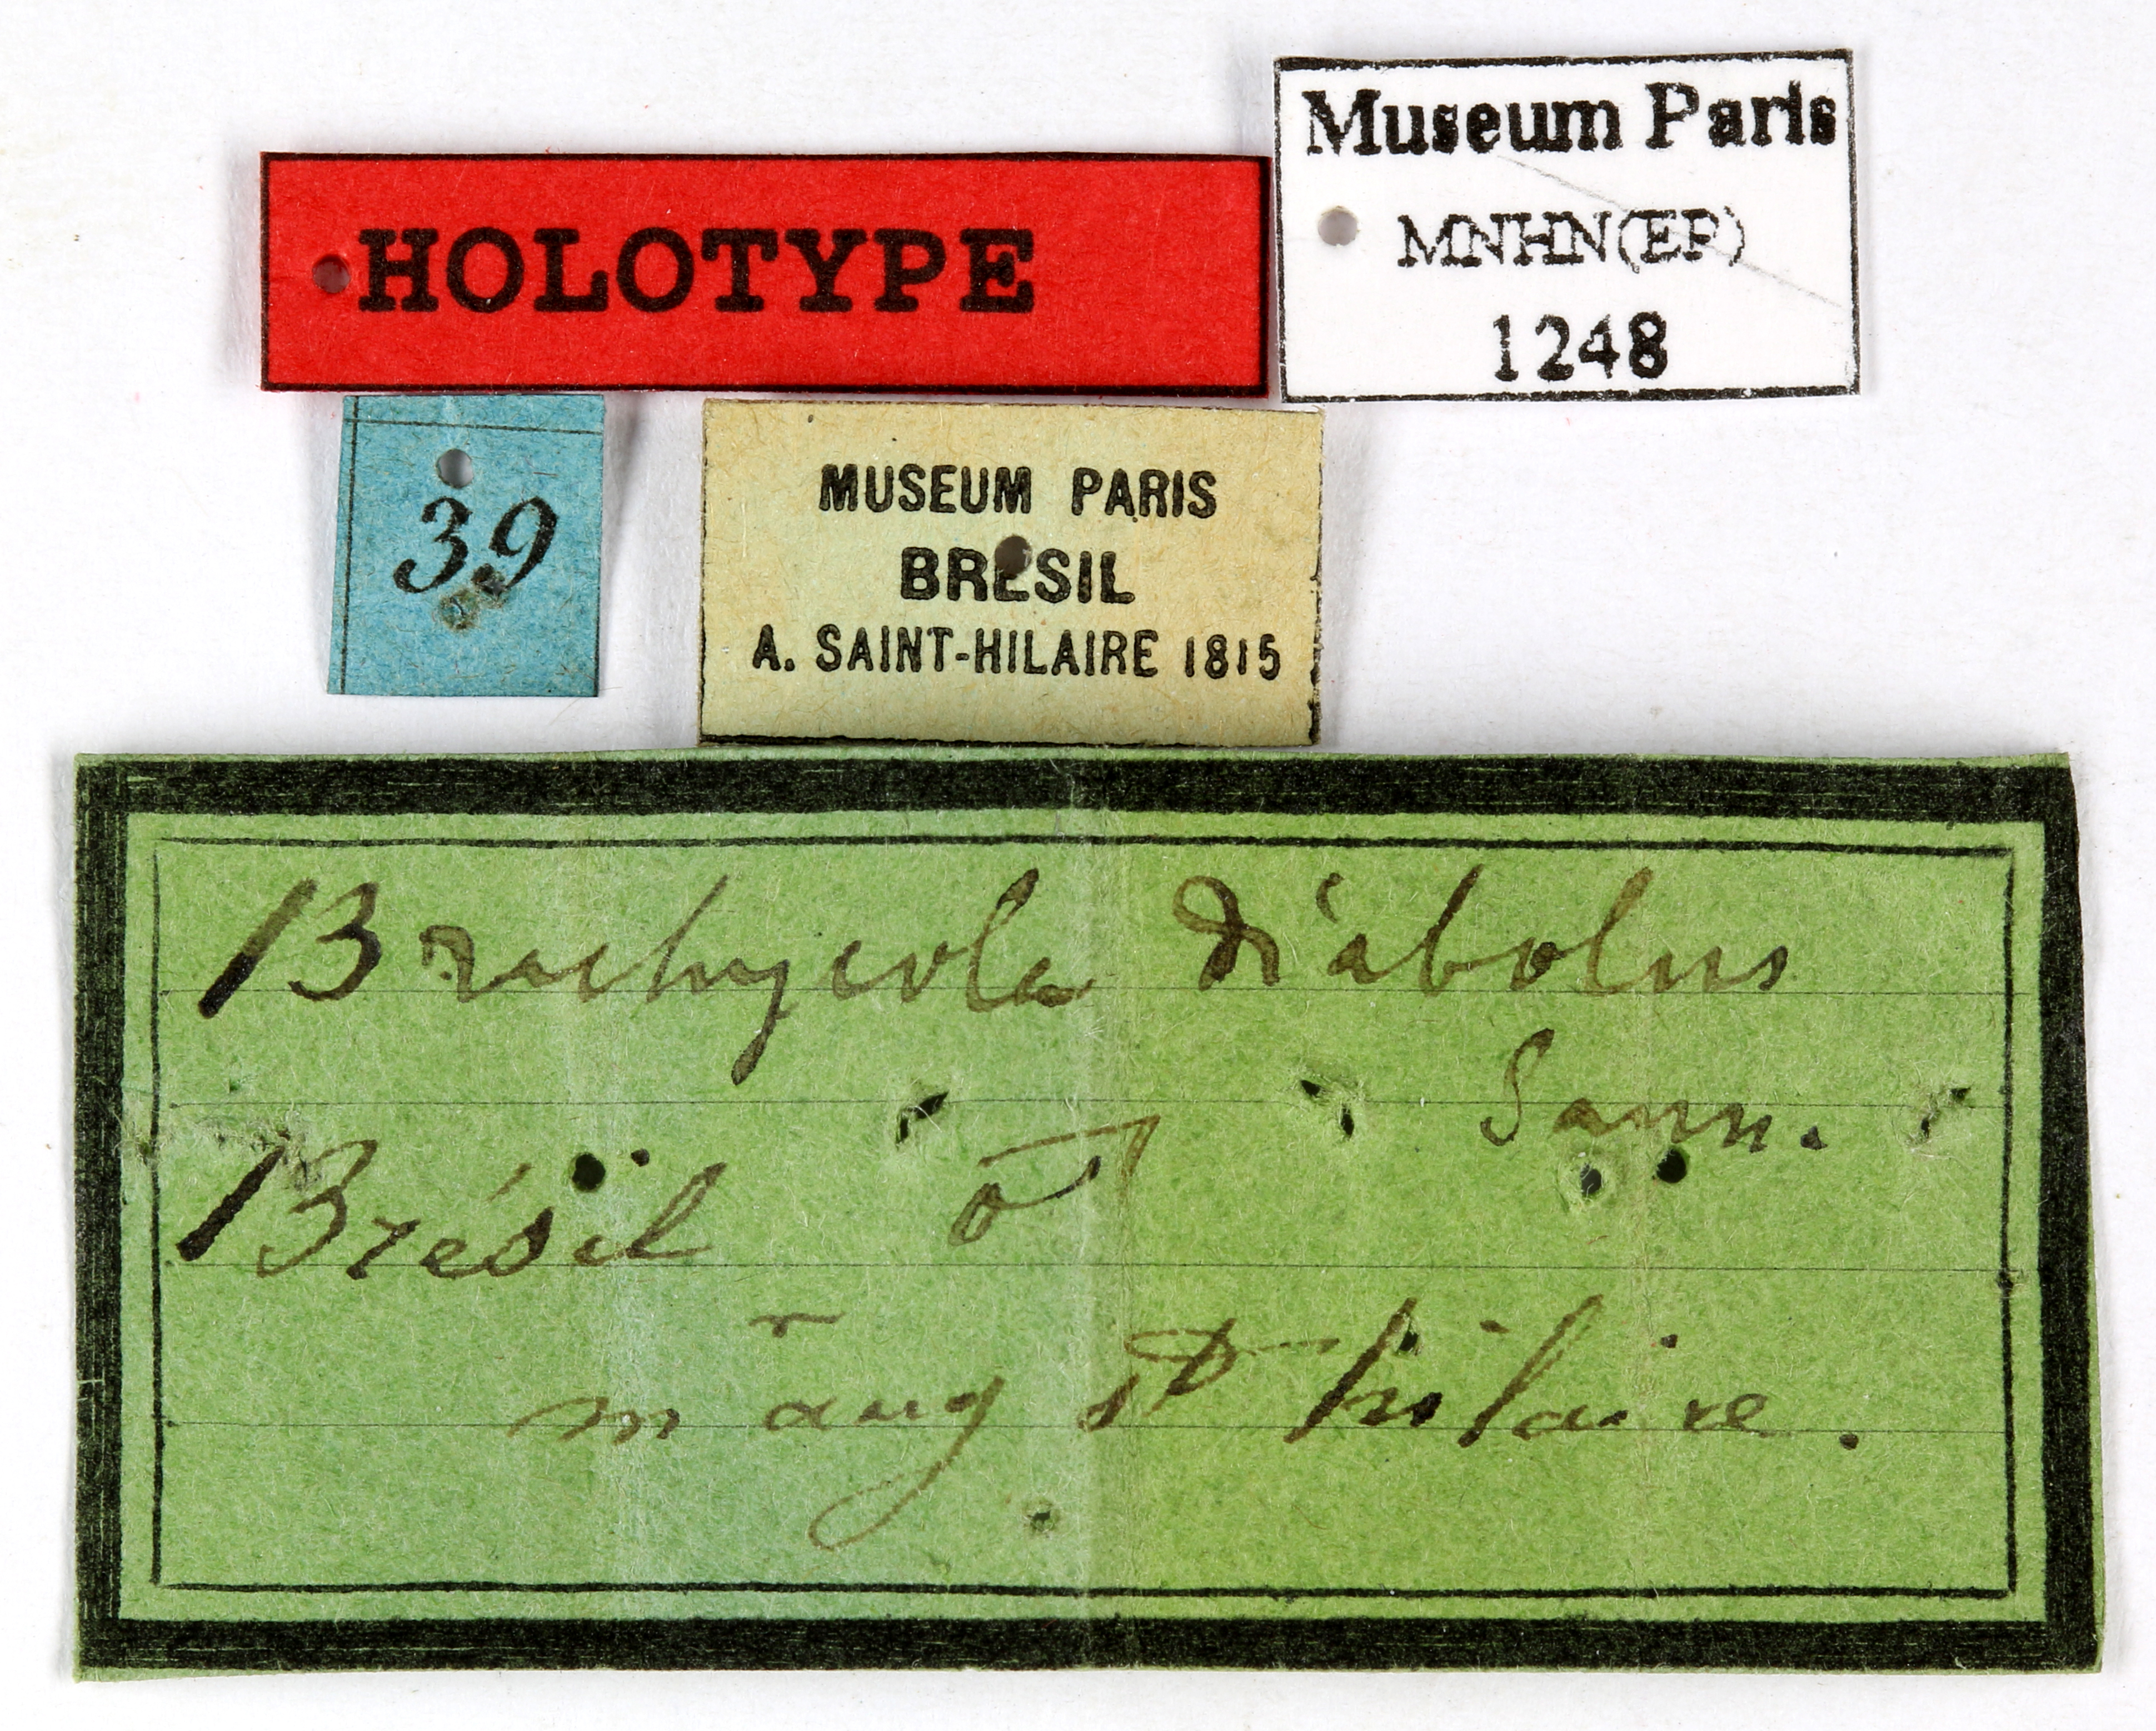 HOLOTYPE
Museum Paris
MNHN(EP)
1248
39
MUSEUM PARIS
BRESIL
A. SAINT-HILAIRE 1815
Brachycola diabolus
Sauss.
Brésil ♂
mr aug st hilaire.